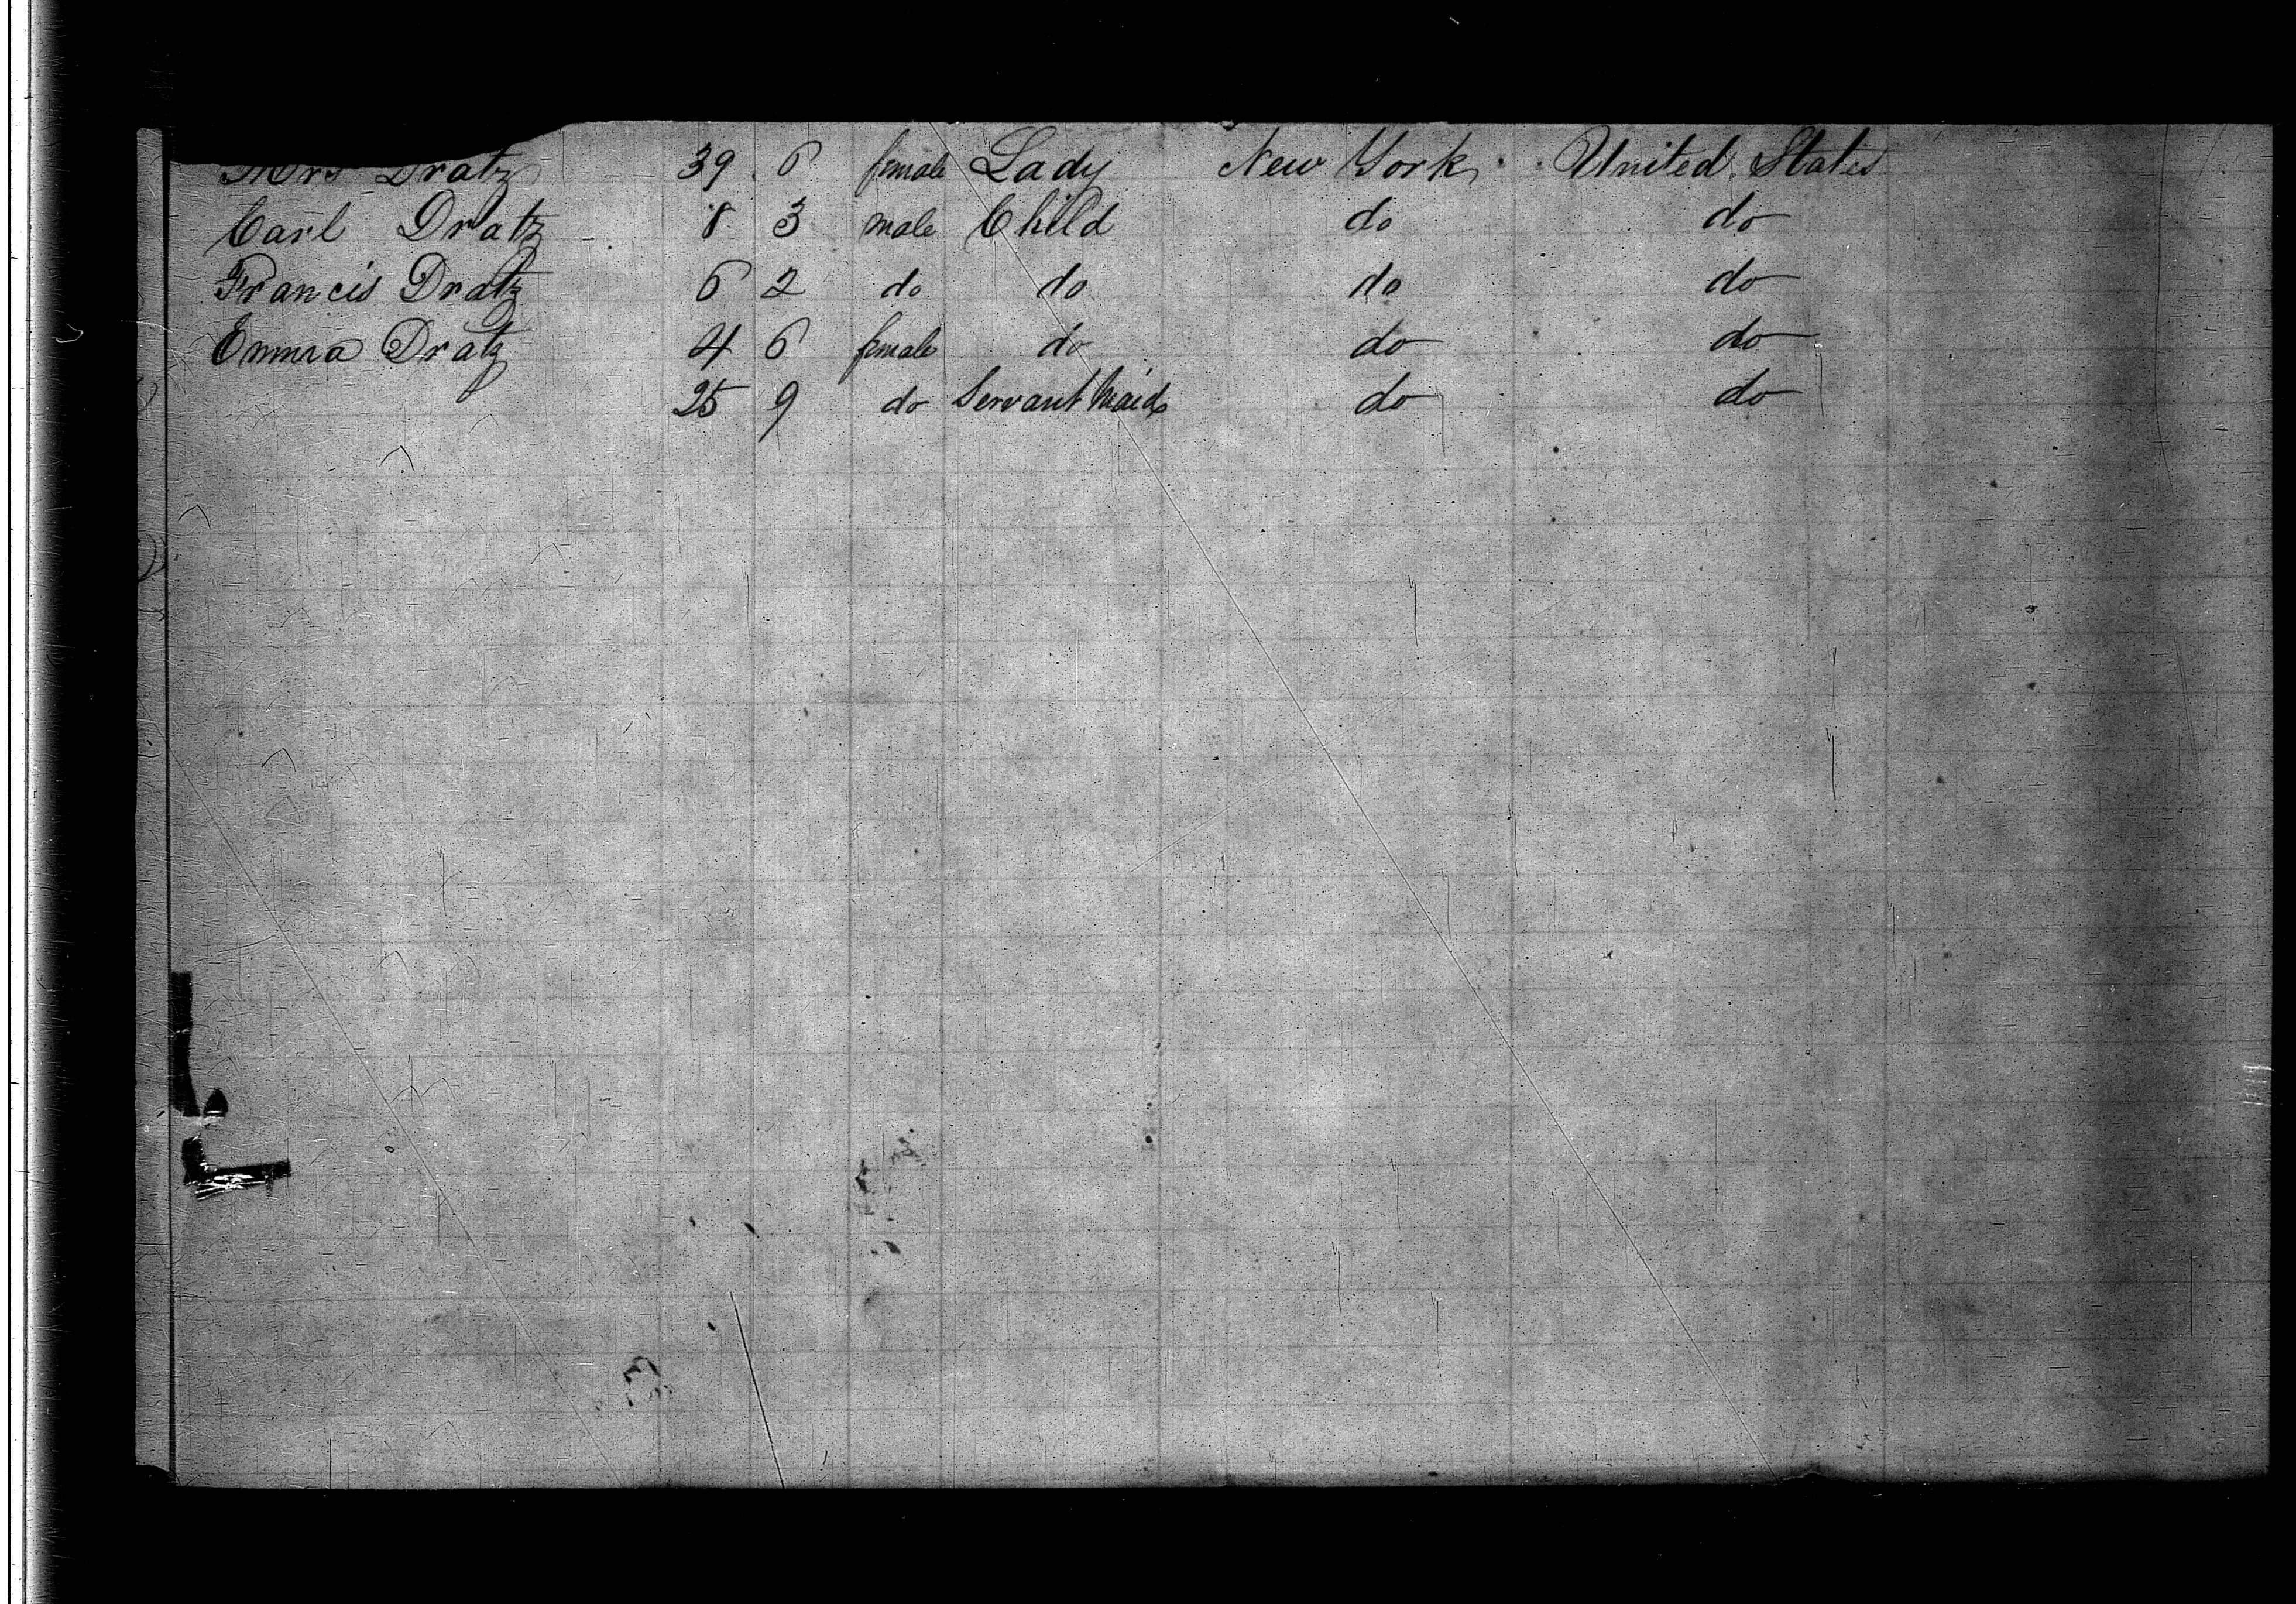 Mrs Dratz 39 6 female Lady New York United States
Carl Dratz 8 3 male Child do do
Francis Dratz 6 2 do do do do
Emma Dratz 4 6 female do do do
25 9 do Servant Maid do do